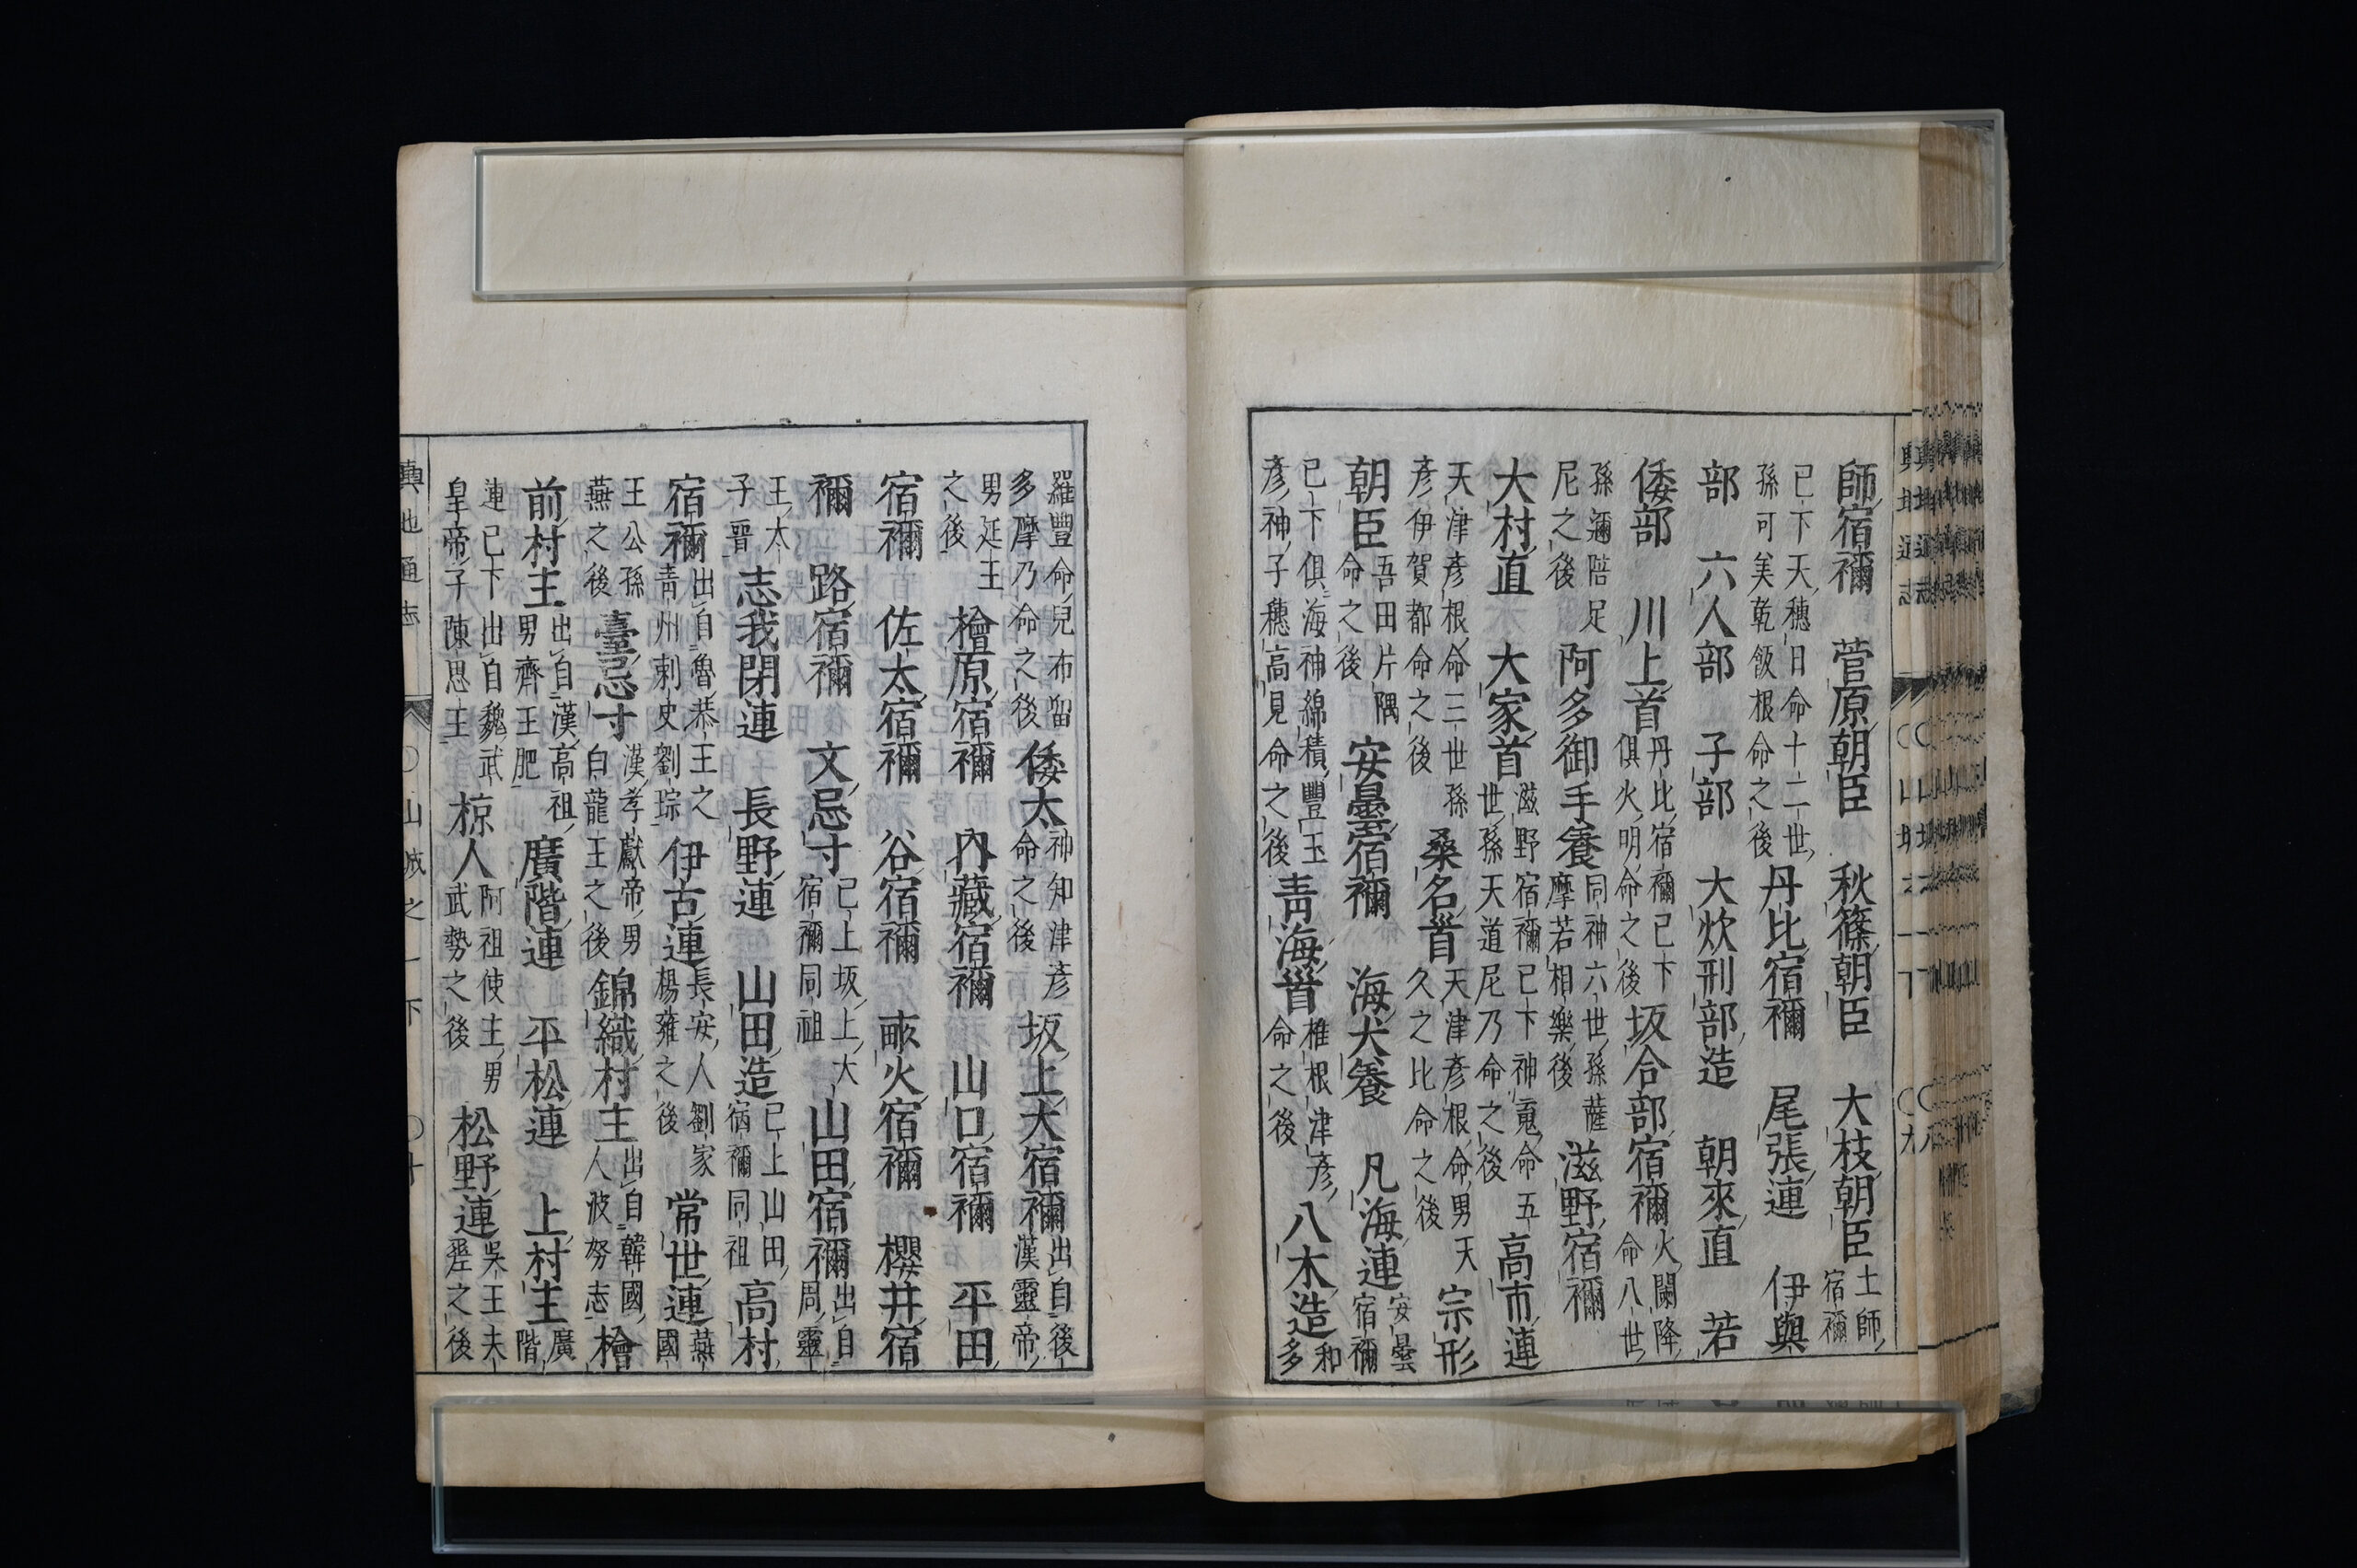 師宿禰 菅原朝臣 秋篠朝臣 大枝朝臣 土師宿禰
已下天穗日命十二世孫可美乾飯根命之後 丹比宿禰 尾張連 伊與
部 六人部 子部 大炊刑部造 朝來直 若
倭部 川上首 丹比宿禰已下俱火明命之後 坂合部宿禰 火闌降命八世
孫邇陪足尼之後 阿多御手養 同神六世孫薩摩若相樂後 滋野宿禰
大村直 大家首 滋野宿禰已下神䰟命五世孫天道尼乃命之後 高市連
天津彥根命三世孫彥伊賀都命之後 桑名首 天津彥根命男天久之比命之後 宗形
朝臣 吾田片隅命之後 安曇宿禰 海犬養 凡海連 安曇宿禰
已下俱海神綿積豐玉彥神子穗高見命之後 青海首 椎根津彥命之後 八木造 和多
羅豐命兒布留多摩乃命之後 倭太 神知津彥命之後 坂上大宿禰 出自後漢靈帝
男延王之後 檜原宿禰 內藏宿禰 山口宿禰 平田
宿禰 佐太宿禰 谷宿禰 畝火宿禰 櫻井宿
禰 路宿禰 文忌寸 已上坂上大宿禰同祖 山田宿禰 出自周靈
王太子晋 志我閉連 長野連 山田造 已上山田宿禰同祖 高村
宿禰 出自魯恭王之青州刺史劉琮 伊古連 長安人劉家楊雍之後 常世連 燕國
王公孫燕之後 臺忌寸 漢孝獻帝男白龍王之後 錦織村主 出自韓國人波努志 檜
前村主 出自漢高祖男齊王肥 廣階連 平松連 上村主 廣階
連已下出自魏武皇帝子陳思王 椋人 阿祖使主男武勢之後 松野連 吳王夫差之後
輿地通志 ○山城之一下 ○十